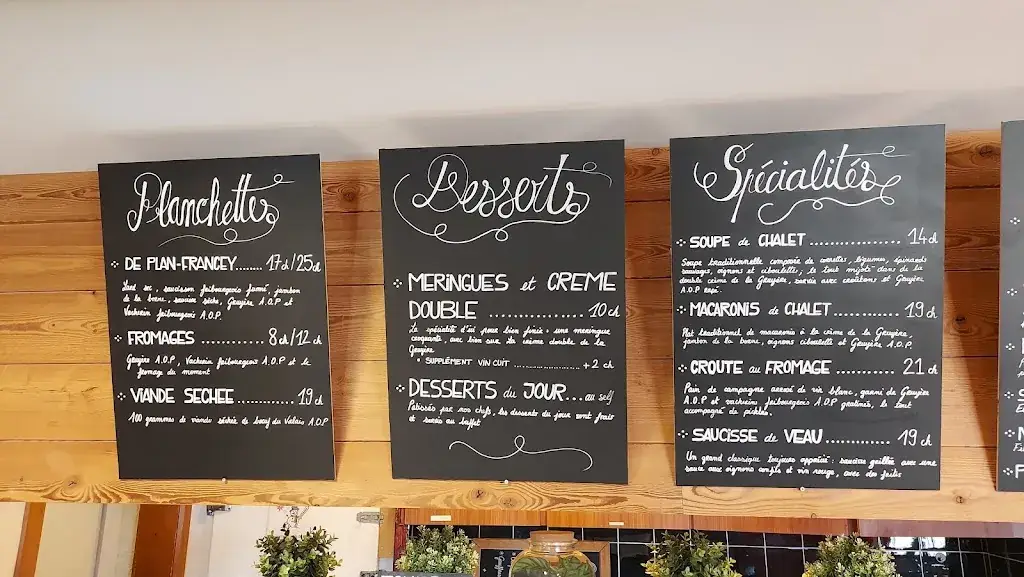 Planchettes
DE PLAN-FRANCEY........ 17ch/25ch
Lard sec, saucisson fribourgeois fumé, jambon
de la borne, saucisse sèche, Gruyère A.O.P et
Vacherin fribourgeois A.O.P.
FROMAGES ............ 8ch/12ch
Gruyère A.O.P, Vacherin fribourgeois A.O.P et le
fromage du moment
VIANDE SECHEE ............ 19ch
100 grammes de viande séchée de bœuf du Valais A.O.P
Desserts
MERINGUES et CREME
DOUBLE .................. 10ch
La spécialité d'ici pour bien finir : une meringue
croquante avec bien sûr la crème double de la
Gruyère
• SUPPLÉMENT VIN CUIT .................. +2 ch
DESSERTS du JOUR... au self
Pâtissés par nos chefs, les desserts du jour sont frais
et servis au buffet
Spécialités
SOUPE de CHALET .................. 14ch
Soupe traditionnelle composée de cornettes, légumes, épinards
sauvages, oignons et ciboulette, le tout mijoté dans de la
double crème de la Gruyère, servie avec croûtons et Gruyère
A.O.P rapé.
MACARONIS de CHALET ............ 19ch
Plat traditionnel de macaronis à la crème de la Gruyère,
jambon de la borne, oignons ciboulette et Gruyère A.O.P.
CROUTE au FROMAGE ............ 21 ch
Pain de campagne arrosé de vin blanc, garni de Gruyère
A.O.P et vacherin fribourgeois A.O.P gratinés, le tout
accompagné de pickles.
SAUCISSE de VEAU ............ 19 ch
Un grand classique toujours apprécié : saucisse grillée avec une
sauce aux oignons confits et vin rouge, avec des frites